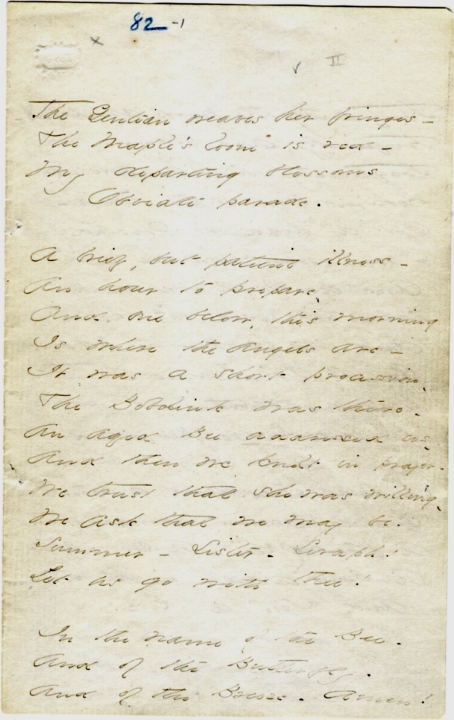 82-1
x
✓ II
The Gentian weaves her fringes –
The Maple's loom is red –
My departing blossoms
Obviate parade.
A brief, but patient illness –
An hour to prepare,
And one below, this morning
Is where the angels are –
It was a short procession,
The Bobolink was there –
An aged Bee addressed us,
And then we knelt in prayer –
We trust that she was willing,
We ask that we may be.
Summer – Sister – Seraph!
Let us go with thee!
In the name of the Bee –
And of the Butterfly –
And of the Breeze – Amen!